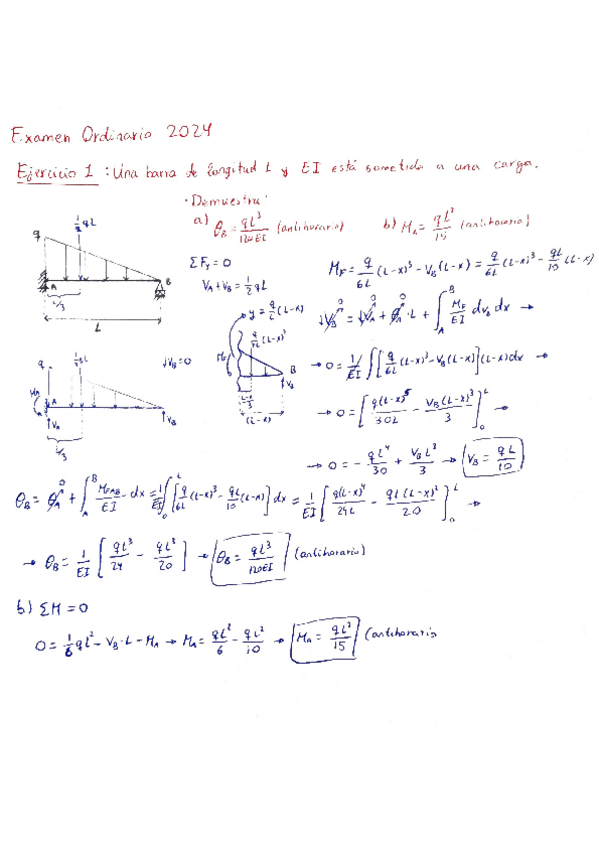 Examen Ordinario 2024
Ejercicio 1 : Una barra de longitud L y EI está sometida a una carga.
· Demuestra:
a) θ_B = qL³/120EI (antihorario)   b) M_A = qL²/15 (antihorario)
½qL
q
A   B
L/3
L
ΣF_y = 0
V_A + V_B = ½qL
M_F = q/6L (L-x)³ - V_B(L-x) = q/6L (L-x)³ - qL/10 (L-x)
y = q/L (L-x)
q/6L (L-x)³
M_F
B
V_B
(L-x)
↓V_B = ↓V_A + θ_A·L + ∫_A^B M_F/EI d_VB dx →
0   0   0
q   ½qL   ↓V_B = 0
M_A   A
V_A   V_B
L/3
→ 0 = 1/EI ∫[q/6L (L-x)³ - V_B(L-x)](L-x)dx →
→ 0 = [q(L-x)⁵/30L - V_B(L-x)³/3]₀^L →
→ 0 = - qL⁴/30 + V_B L³/3 → V_B = qL/10
θ_B = θ_A + ∫_A^B M_FAB/EI dx = 1/EI ∫₀^L [q/6L (L-x)³ - qL/10 (L-x)] dx = 1/EI [q(L-x)⁴/24L - qL(L-x)²/20]₀^L →
→ θ_B = 1/EI [qL³/24 - qL³/20] → θ_B = qL³/120EI (antihorario)
b) ΣM = 0
0 = 1/6 qL² - V_B·L - M_A → M_A = qL²/6 - qL²/10 → M_A = qL²/15 (antihorario